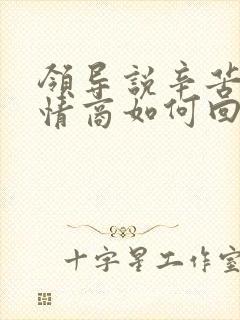 领导説辛苦
情商如何回
十字星工作室